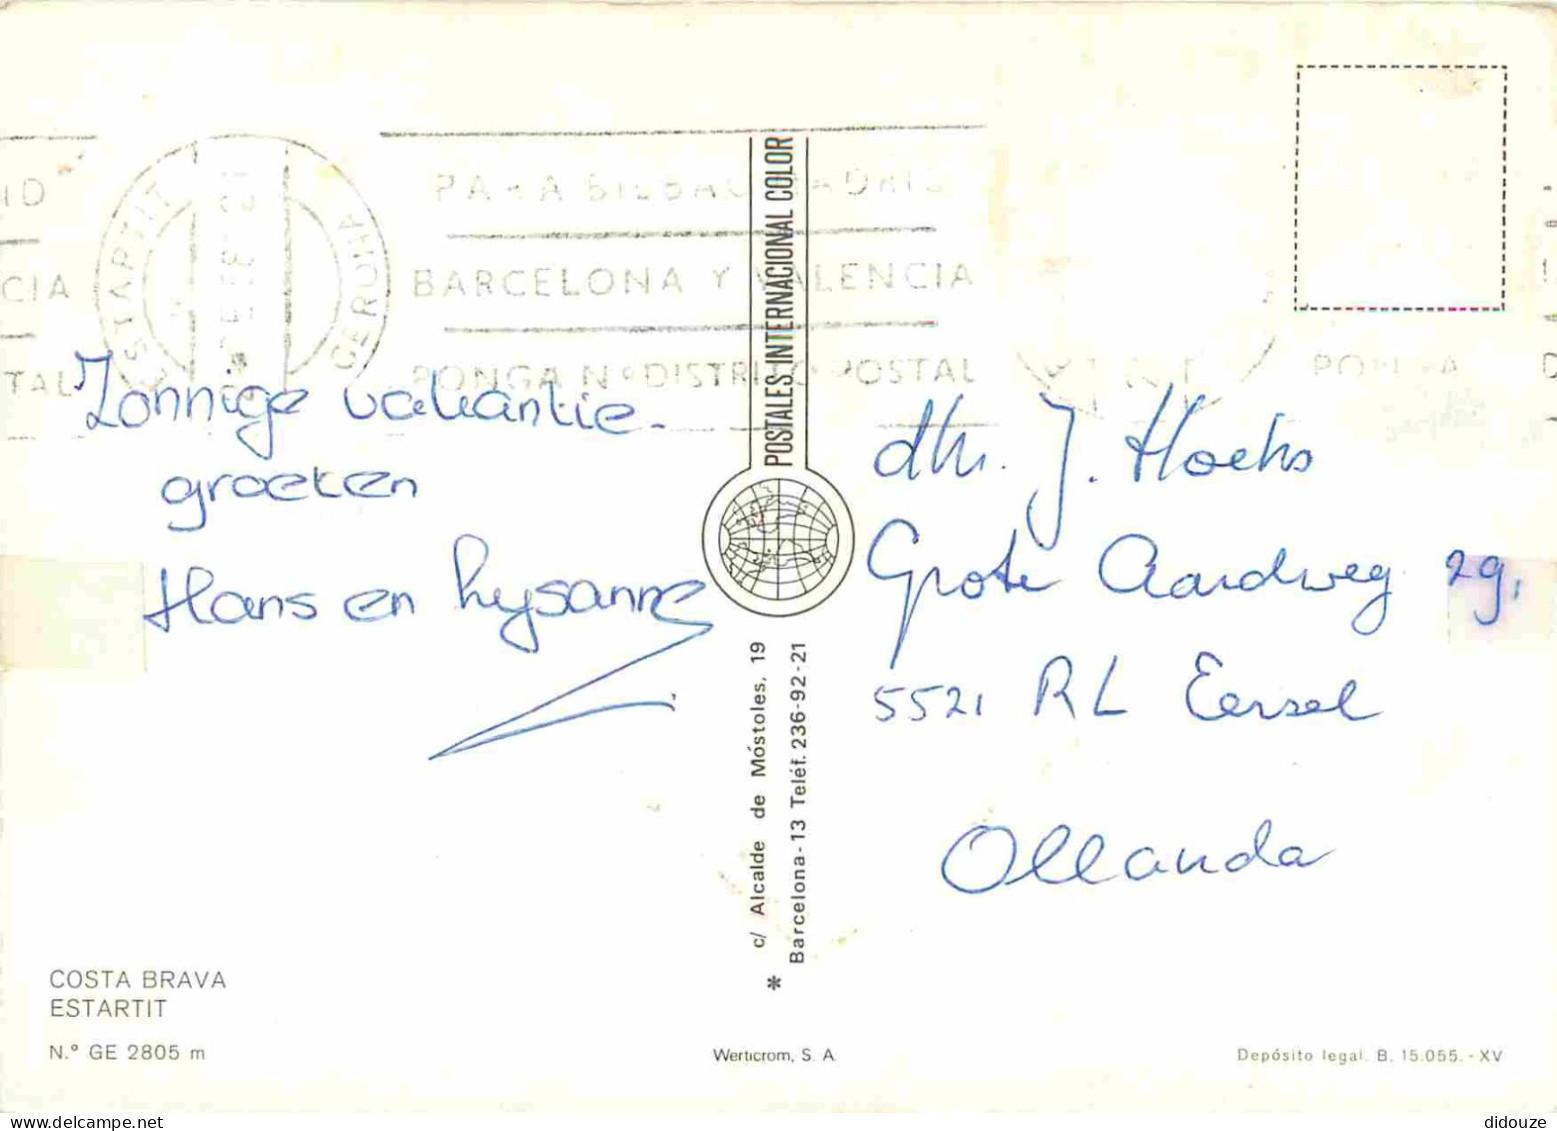 PARA BILBAO MADRID
BARCELONA Y VALENCIA
PONGA Nº DISTRITO POSTAL
ESTARTIT
GERONA
CIA
TAL
POSTALES INTERNACIONAL COLOR
Zonnige vakantie-
groeten
Hans en Lysanne
dhr. J. Hoeks
Grote Aardweg 29,
5521 RL Eersel
Ollanda
c/ Alcalde de Móstoles, 19
Barcelona-13 Teléf. 236-92-21
*
COSTA BRAVA
ESTARTIT
N.º GE 2805 m
Werticrom, S. A.
Depósito legal. B. 15.055.-XV
didouze